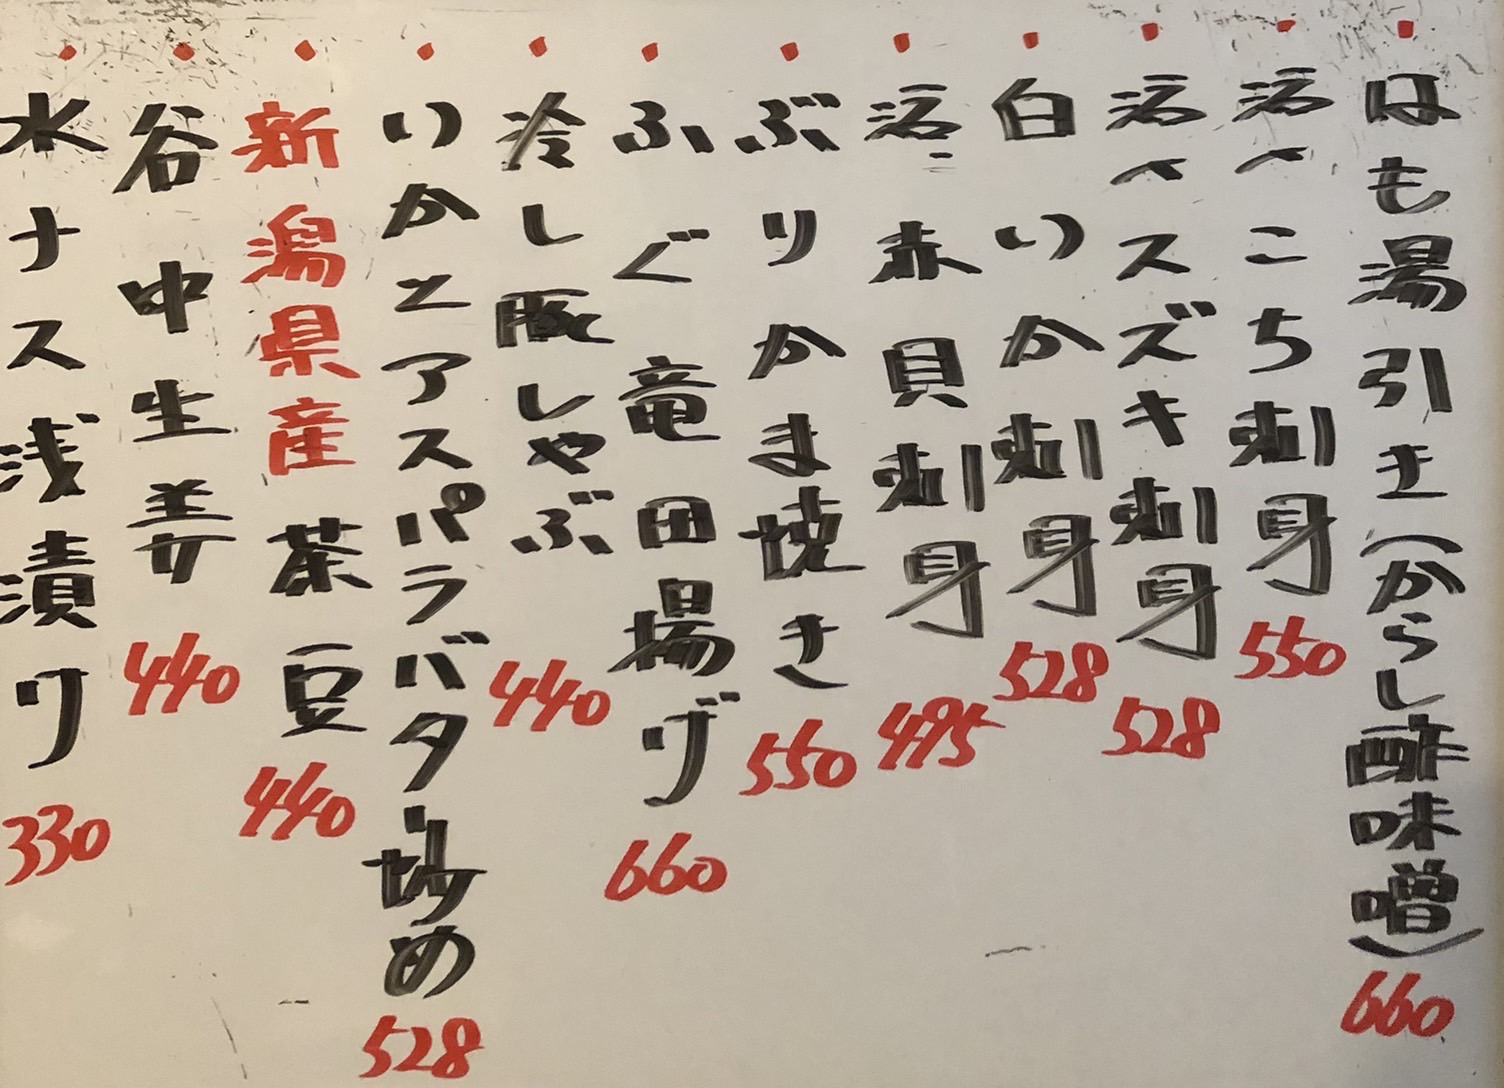 ・はも湯引き(からし酢味噌)660
・活〆こち刺身550
・活〆スズキ刺身528
・白いか刺身528
・活赤貝刺身495
・ぶりかま焼き550
・ふぐ竜田揚げ660
・冷し豚しゃぶ440
・いかとアスパラバター炒め528
・新潟県産茶豆440
・谷中生姜440
・水ナス浅漬け330